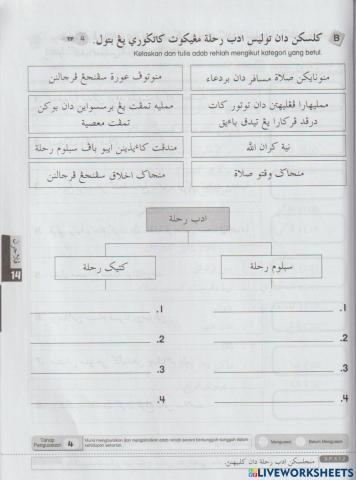 B كلسكن دان توليس ادب رحلة مڠيكوت كاتݢوري يڠ بتول. TP 4
Kelaskan dan tulis adab rehlah mengikut kategori yang betul.
منونايكن صلاة مسافر دان بردعاء
منوتوڤ عورة سڤنجڠ ڤرجالنن
مميليهارا ڤڠليهتن دان توتور كات
درڤد ڤركارا يڠ تيدق باءيق
مميليه تمڤت يڠ برسسواين دان بوكن
تمڤت معصية
نية كران الله
مندڤت كاءيذينن ايبو باڤ سبلوم رحلة
منجاݢ وقتو صلاة
منجاݢ اخلاق سڤنجڠ ڤرجالنن
ادب رحلة
سبلوم رحلة
كتيک رحلة
.1
.1
.2
.2
.3
.3
.4
.4
ڤلاجرن
14
Tahap Penguasaan 4
Menguasai
Belum Menguasai
منجلسكن ادب رحلة دان كلبيهنڽ.
LIVEWORKSHEETS